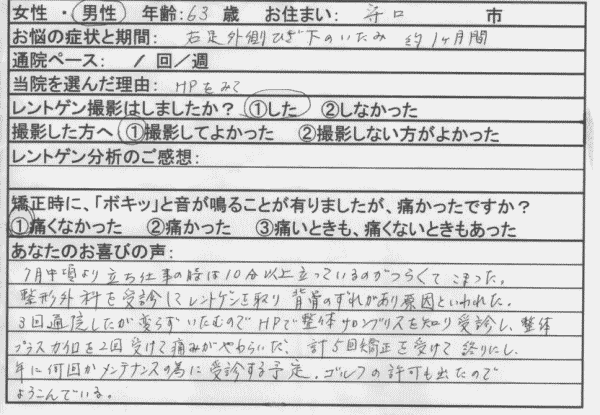 女性 ・ 男性 年齢:63 歳 お住まい: 守口 市
お悩の症状と期間: 右足外側ひざ下のいたみ 約1ヶ月間
通院ペース: 1 回/週
当院を選んだ理由: HPをみて
レントゲン撮影はしましたか? ①した ②しなかった
撮影した方へ ①撮影してよかった ②撮影しない方がよかった
レントゲン分析のご感想:
矯正時に、「ボキッ」と音が鳴ることが有りましたが、痛かったですか?
①痛くなかった ②痛かった ③痛いときも、痛くないときもあった
あなたのお喜びの声:
7月中頃より立ち仕事の時は10分以上立っているのがつらくてこまった。
整形外科を受診してレントゲンを取り背骨のずれがあり原因といわれた。
3回通院したが変らずいたむのでHPで整体サロンブリスを知り受診し、整体
プラスカイロを2回受けて痛みがやわらいだ、計5回矯正を受けて終りにし、
年に何回かメンテナンスの為に受診する予定。ゴルフの許可も出たので
よろこんでいる。